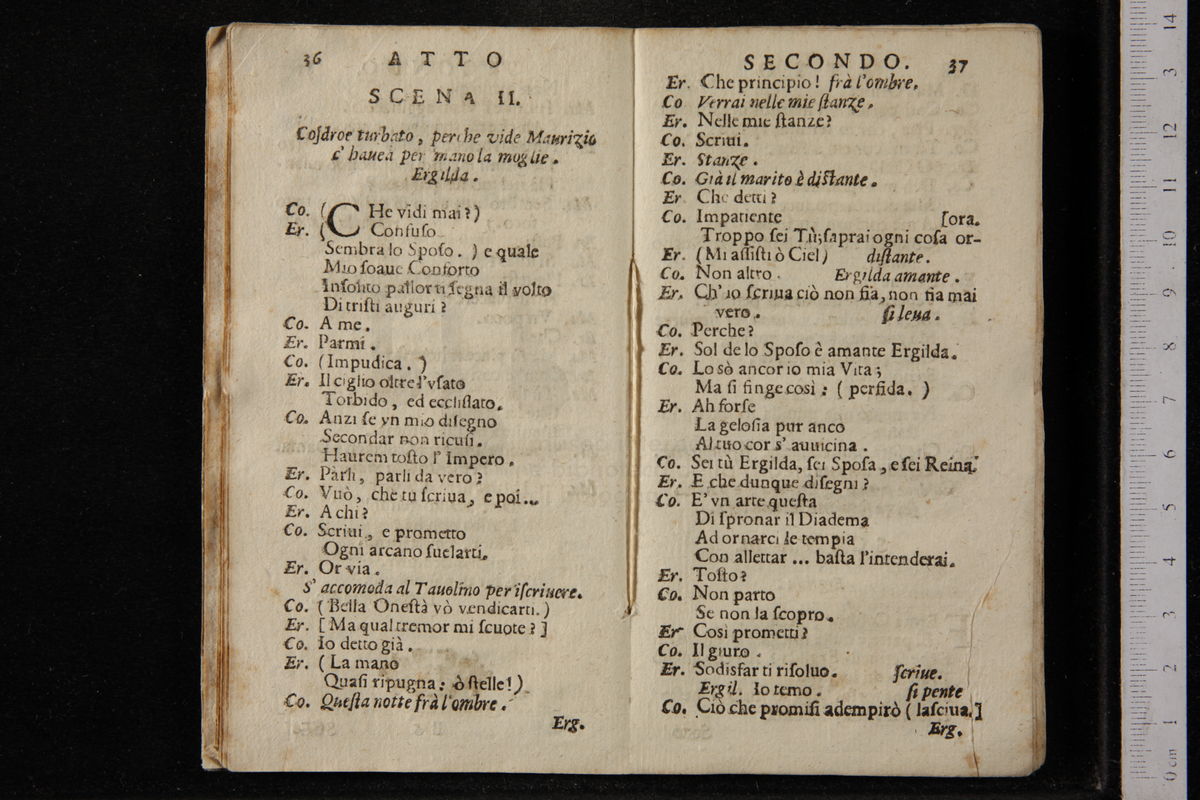 36 ATTO
SCENA II.
Coſdroe turbato, perche vide Maurizio
c' hauea per mano la moglie.
Ergilda.
Co. (CHe vidi mai?)
Er. (Confuſo
Sembra lo Spoſo. ) e quale
Mio ſoaue Conforto
Inſolito pallor ti ſegna il volto
Di triſti auguri?
Co. A me.
Er. Parmi.
Co. (Impudica. )
Er. Il ciglio oltre l'vſato
Torbido, ed eccliſſato.
Co. Anzi ſe vn mio diſegno
Secondar non ricuſi.
Haurem toſto l' Impero.
Er. Parli, parli da vero?
Co. Vuò, che tu ſcriua, e poi...
Er. A chi?
Co. Scriui, e prometto
Ogni arcano ſuelarti.
Er. Or via.
S' accomoda al Tauolino per iſcriuere.
Co. (Bella Oneſtà vò vendicarti.)
Er. [Ma qual tremor mi ſcuote?]
Co. Io detto già.
Er. (La mano
Quaſi ripugna: ò ſtelle!)
Co. Queſta notte frà l'ombre.
Erg.
SECONDO. 37
Er. Che principio! frà l'ombre.
Co Verrai nelle mie ſtanze.
Er. Nelle mie ſtanze?
Co. Scriui.
Er. Stanze.
Co. Già il marito è diſtante.
Er Che detti?
Co. Impatiente [ora.
Troppo ſei Tù; ſaprai ogni coſa or-
Er. (Mi aſſiſti ò Ciel) diſtante.
Co. Non altro. Ergilda amante.
Er. Ch' io ſcriua ciò non fia, non fia mai
vero. ſi leua.
Co. Perche?
Er. Sol de lo Spoſo è amante Ergilda.
Co. Lo sò ancor io mia Vita;
Ma ſi finge così: (perfida. )
Er. Ah forſe
La geloſia pur anco
Al tuo cor s' auuicina.
Co. Sei tù Ergilda, ſei Spoſa, e ſei Reina.
Er. E che dunque diſegni?
Co. E' vn arte queſta
Di ſpronar il Diadema
Ad ornarci le tempia
Con allettar ... baſta l'intenderai.
Er. Toſto?
Co. Non parto
Se non la ſcopro.
Er Così prometti?
Co. Il giuro.
Er. Sodisfar ti riſoluo. ſcriue.
Ergil. Io temo. ſi pente
Co. Ciò che promiſi adempirò (laſciua.]
Erg.
0 cm 1 2 3 4 5 6 7 8 9 10 11 12 13 14